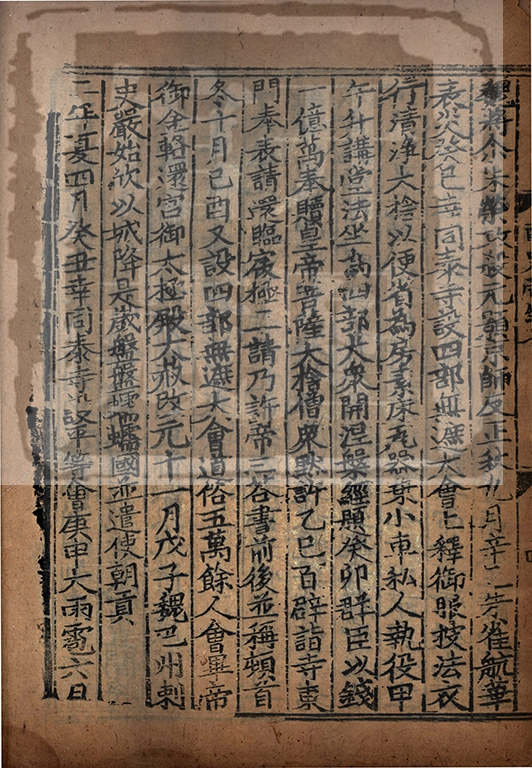 魏將尒朱榮攻殺元顥京師反正秋九月辛巳朱雀航華
表災癸巳幸同泰寺設四部無遮大會上釋御服披法衣
行清淨大捨以便省為房素床瓦器乗小車私人執役甲
午升講堂法坐為四部大衆開涅槃經題癸卯群臣以錢
一億萬奉贖皇帝菩薩大捨僧衆默許乙巳百辟詣寺東
門奉表請還臨宸極三請乃許帝三荅書前後並稱頓首
冬十月己酉又設四部無遮大會道俗五萬餘人會畢帝
御金輅還宮御太極殿大赦改元十一月戊子魏巴州刺
史嚴始欣以城降是歲盤盤蠕蠕國並遣使朝貢
二年夏四月癸丑幸同泰寺設平等會庚申大雨雹六月